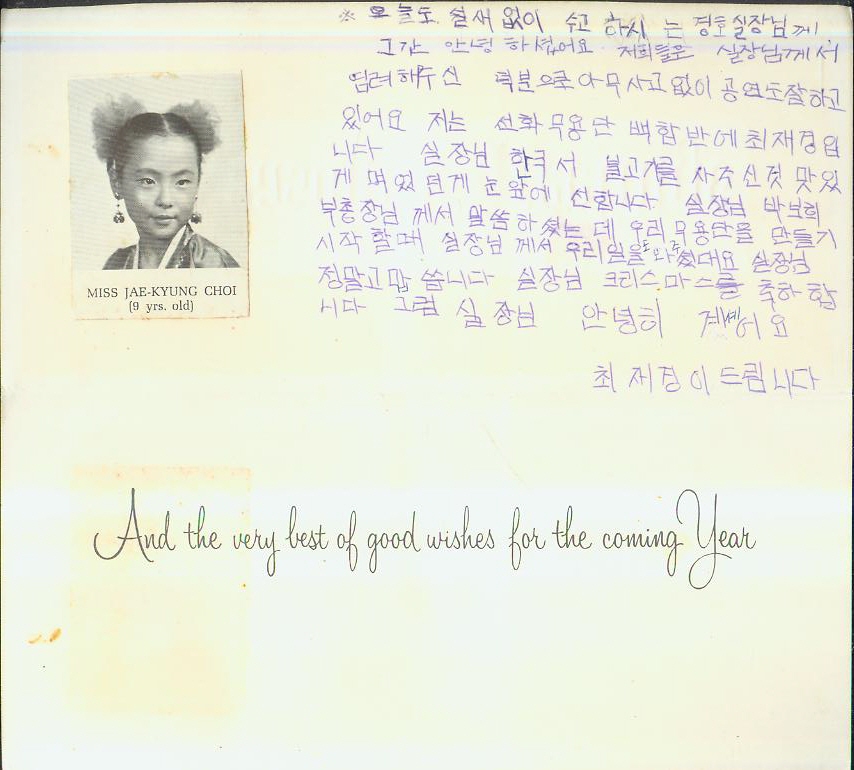 ※ 오늘도 쉴새 없이 수고 하시 는 경호실장님께
그간 안녕 하셨어요 저희들은 실장님께서
염려해주신 덕분으로 아무사고없이 공연도잘하고
있어요 저는 선화 무용단 백합반에 최재경입
니다 실장님 한국서 불고기를 사주신것 맛있
게 먹었던게 눈앞에 선합니다 실장님 박보희
부총장님 께서 말씀하셨는데 우리무용단을 만들기
시작 할때 실장님께서 우리일을 도와주셨대요 실장님
정말고맙 씁니다 실장님 크리스마스를 축하합
니다 그럼 실장님 안녕히 계세어요
최재경이드림니다
MISS JAE-KYUNG CHOI
(9 yrs. old)
And the very best of good wishes for the coming Year